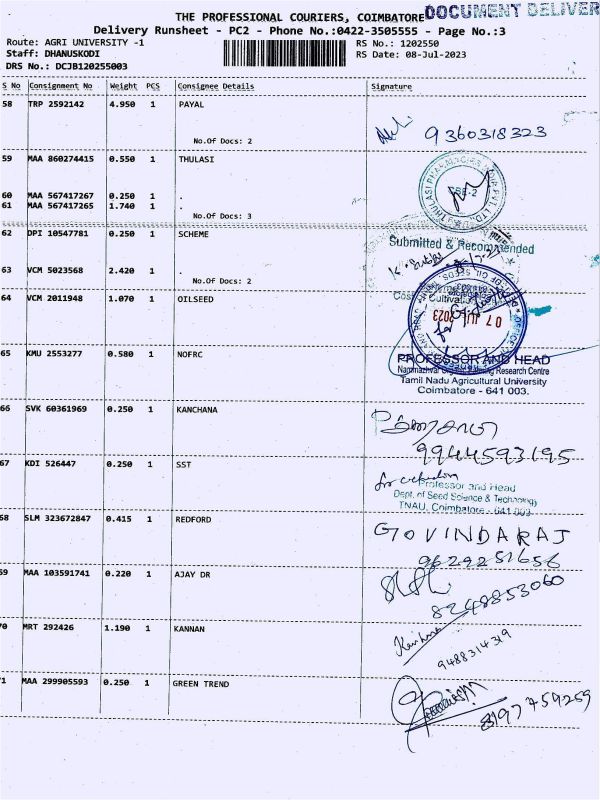 THE PROFESSIONAL COURIERS, COIMBATORE
DOCUMENT DELIVER
Delivery Runsheet - PC2 - Phone No.:0422-3505555 - Page No.:3
Route: AGRI UNIVERSITY -1
RS No.: 1202550
Staff: DHANUSKODI
RS Date: 08-Jul-2023
DRS No.: DCJB120255003
S No Consignment No Weight PCS Consignee Details Signature
58 TRP 2592142 4.950 1 PAYAL
No.Of Docs: 2
9360318323
59 MAA 860274415 0.550 1 THULASI
60 MAA 567417267 0.250 1 .
61 MAA 567417265 1.740 1 .
No.Of Docs: 3
62 DPI 10547781 0.250 1 SCHEME
Submitted & Recommended
63 VCM 5023568 2.420 1 .
No.Of Docs: 2
64 VCM 2011948 1.070 1 OILSEED
07 JUL 2023
65 KMU 2553277 0.580 1 NOFRC
PROFESSOR AND HEAD
Research Centre
Tamil Nadu Agricultural University
Coimbatore - 641 003.
66 SVK 60361969 0.250 1 KANCHANA
9944593195
67 KDI 526447 0.250 1 SST
Professor and Head
Dept. of Seed Science & Technology
TNAU, Coimbatore - 641 003
68 SLM 323672847 0.415 1 REDFORD
GOVINDARAJ
9629251656
69 MAA 103591741 0.220 1 AJAY DR
8248853060
70 MRT 292426 1.190 1 KANNAN
9488314319
71 MAA 299905593 0.250 1 GREEN TREND
8197759259